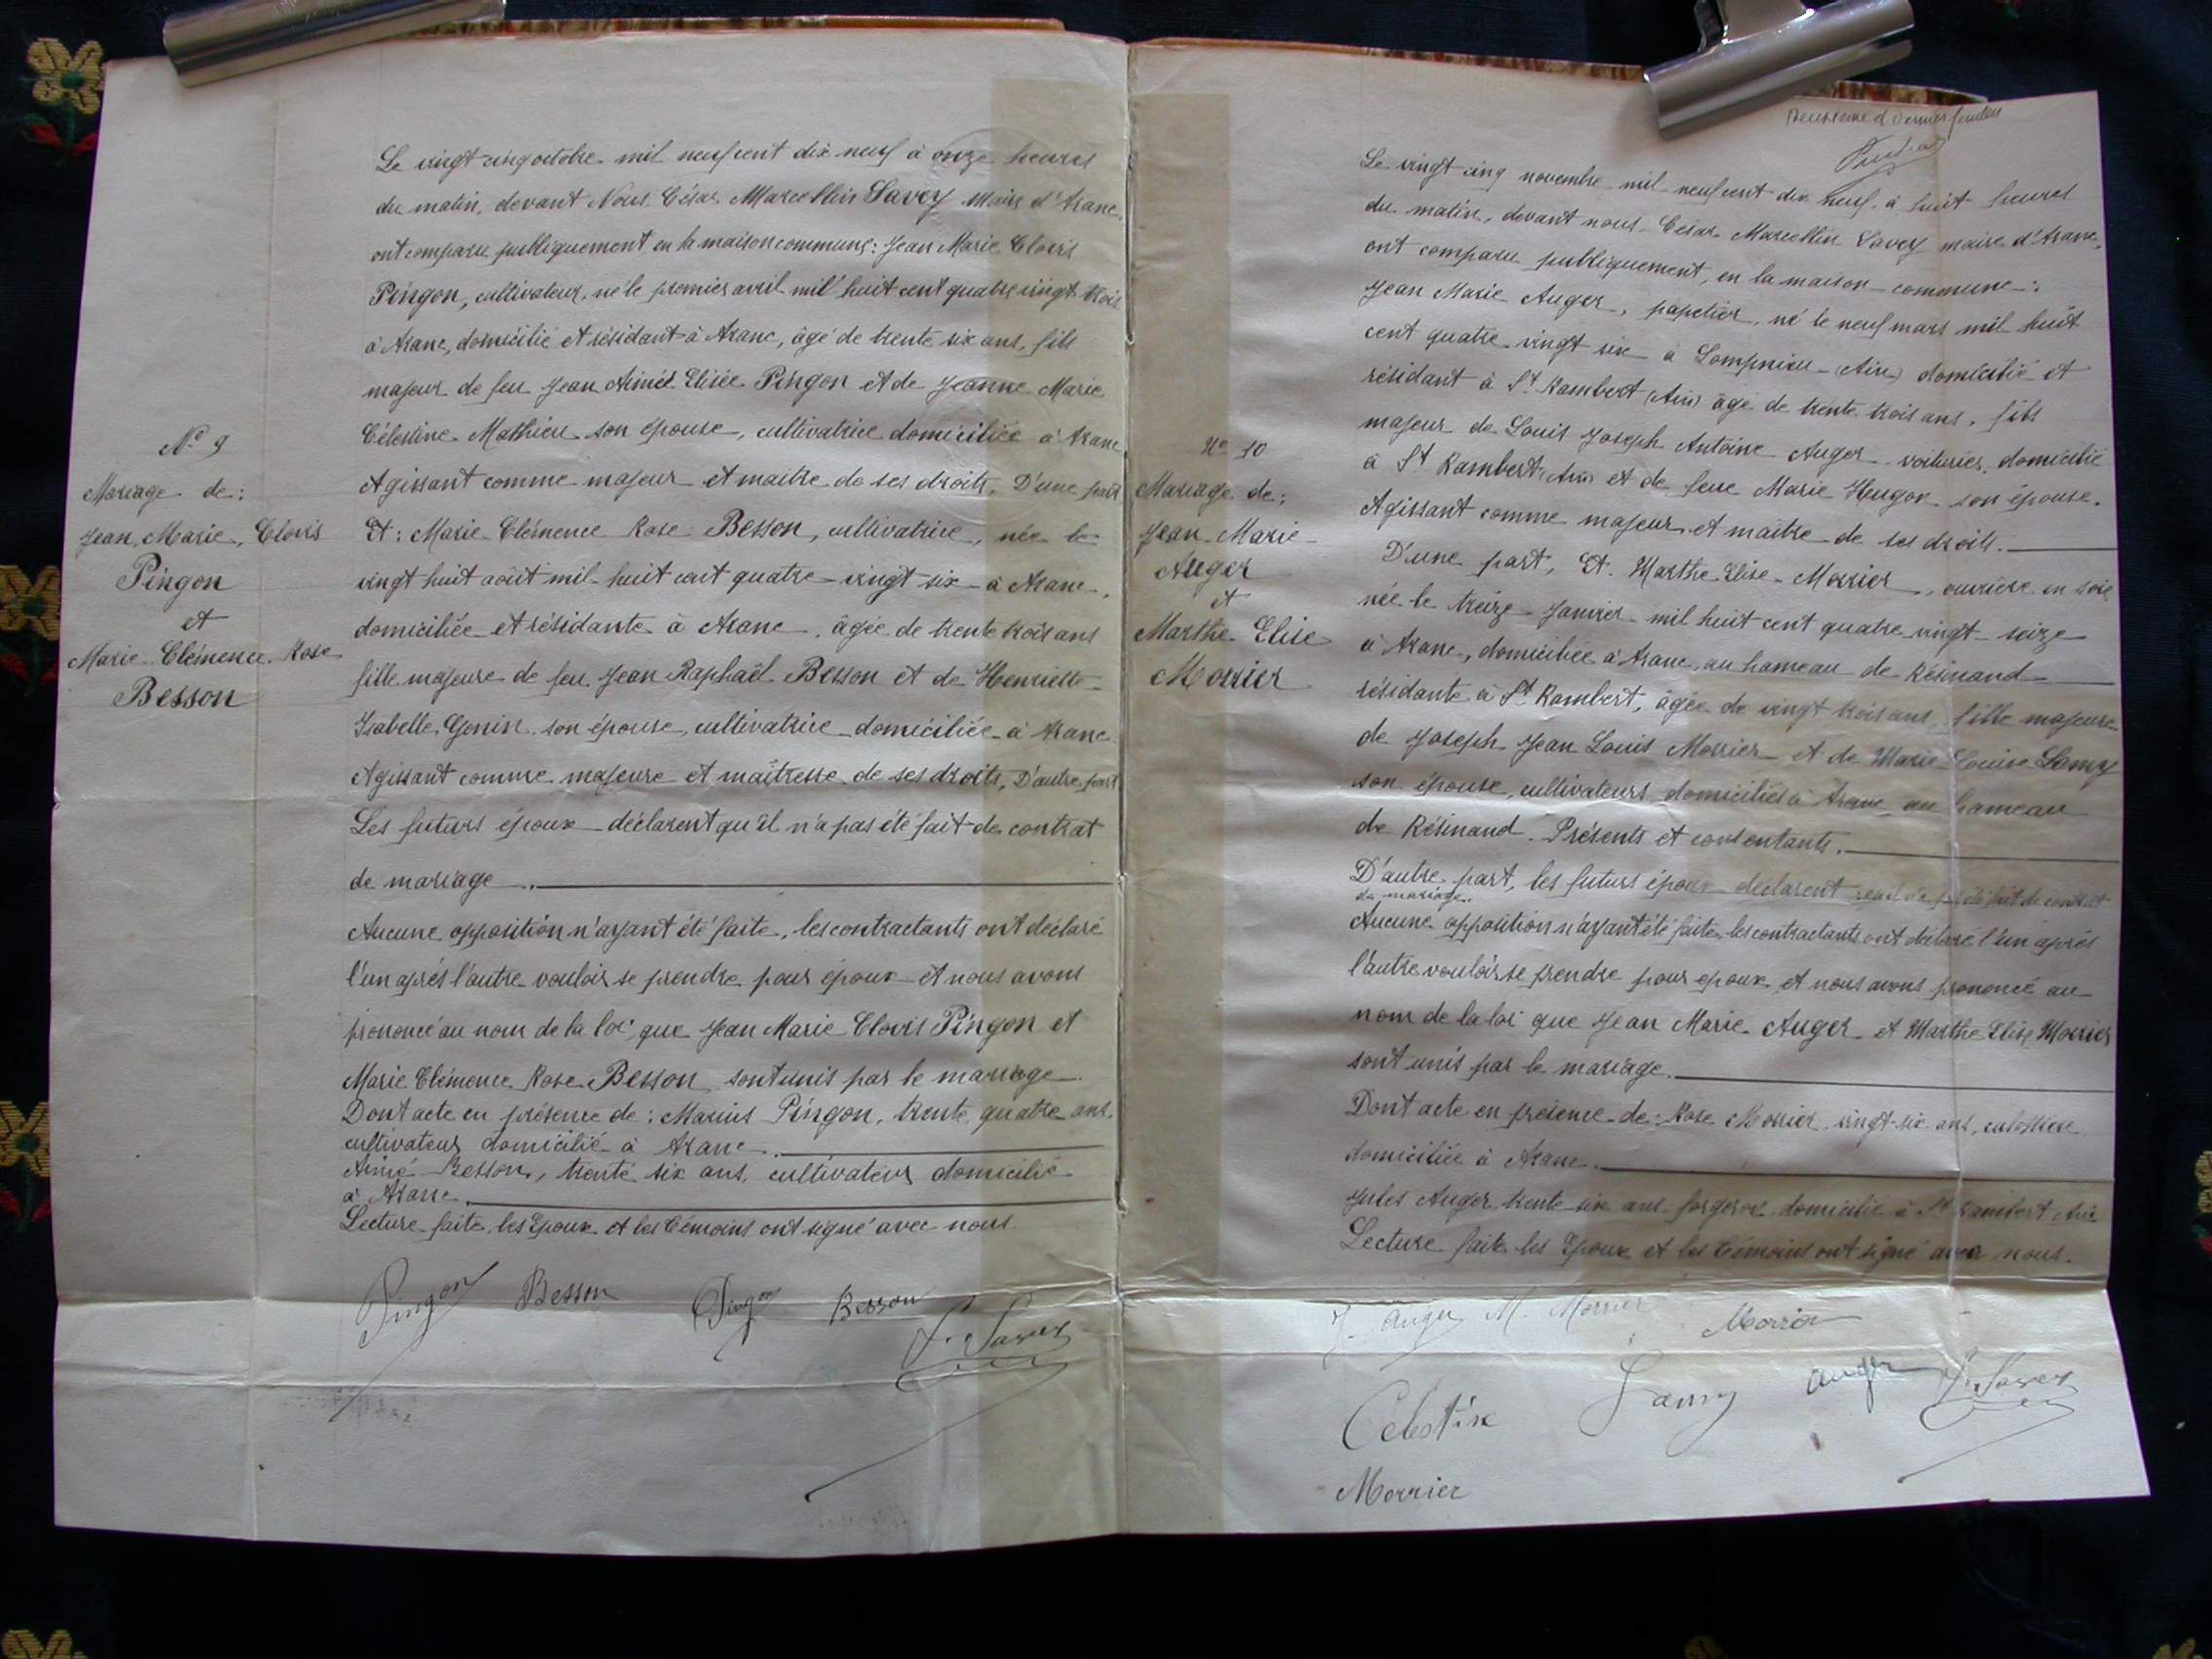 N° 9
Mariage de :
Jean, Marie, Clovis
Pingon
et
Marie Clémence Rose
Besson
Le vingt cinq octobre mil neuf cent dix neuf à onze heures
du matin, devant Nous César Marcellin Savey Maire d'Aranc,
ont comparu publiquement en la maison commune : Jean Marie Clovis
Pingon, cultivateur, né le premier avril mil huit cent quatre vingt trois
à Aranc, domicilié et résidant à Aranc, âgé de trente six ans, fils
majeur de feu Jean Aimé Elisée Pingon et de Jeanne Marie
Célestine Mathieu son épouse, cultivatrice domiciliée à Aranc
Agissant comme majeur et maitre de ses droits, D'une part
Et : Marie Clémence Rose Besson, cultivatrice, née le
vingt huit août mil huit cent quatre-vingt six à Aranc,
domiciliée et résidante à Aranc, âgée de trente trois ans
fille majeure de feu Jean Raphaël Besson et de Henriette
Isabelle Genin, son épouse, cultivatrice domiciliée à Aranc
Agissant comme majeure et maîtresse de ses droits, D'autre part
Les futurs époux déclarent qu'il n'a pas été fait de contrat
de mariage.
Aucune opposition n'ayant été faite, les contractants ont déclaré
l'un après l'autre vouloir se prendre pour époux et nous avons
prononcé au nom de la loi que Jean Marie Clovis Pingon et
Marie Clémence Rose Besson sont unis par le mariage
Dont acte en présence de : Marius Pingon, trente quatre ans,
cultivateur domicilié à Aranc.
Aimé Besson, trente six ans, cultivateur domicilié
à Aranc.
Lecture faite, les Epoux et les témoins ont signé avec nous
Pingon Besson Pingon Besson
C. Savey
Deuxième et Dernier feuillet
N° 10
Mariage de :
Jean Marie
Auger
et
Marthe Elise
Morrier
Le vingt cinq novembre mil neuf cent dix neuf, à huit heures
du matin, devant nous César Marcellin Savey maire d'Aranc,
ont comparu publiquement, en la maison commune :
Jean Marie Auger, papetier, né le neuf mars mil huit
cent quatre vingt six à Lompnieu (Ain) domicilié et
résidant à St Rambert (Ain) âgé de trente trois ans, fils
majeur de Louis Joseph Antoine Auger voiturier, domicilié
à St Rambert (Ain) et de feue Marie Heugon son épouse.
Agissant comme majeur et maître de ses droits.
D'une part, Et. Marthe Elise Morrier, ouvrière en soie
née le treize Janvier mil huit cent quatre vingt seize
à Aranc, domiciliée à Aranc au hameau de Résinand
résidante à St Rambert, âgée de vingt trois ans, fille majeure
de Joseph Jean Louis Morrier et de Marie Louise Lamy
son épouse, cultivateurs domiciliés à Aranc au hameau
de Résinand. Présents et consentants.
D'autre part, les futurs époux déclarent qu'il n'a pas été fait de contrat
de mariage.
Aucune opposition n'ayant été faite les contractants ont déclaré l'un après
l'autre vouloir se prendre pour epoux et nous avons prononcé au
nom de la loi que Jean Marie Auger et Marthe Elise Morrier
sont unis par le mariage.
Dont acte en présence de : Rose Morrier, vingt-six ans, culottière
domiciliée à Aranc.
Jules Auger, trente six ans, forgeron domicilié à St Rambert Ain
Lecture faite les Epoux et les témoins ont signé avec nous.
J. Auger M. Morrier Morrier
Celestine Lamy Auger C. Savey
Morrier